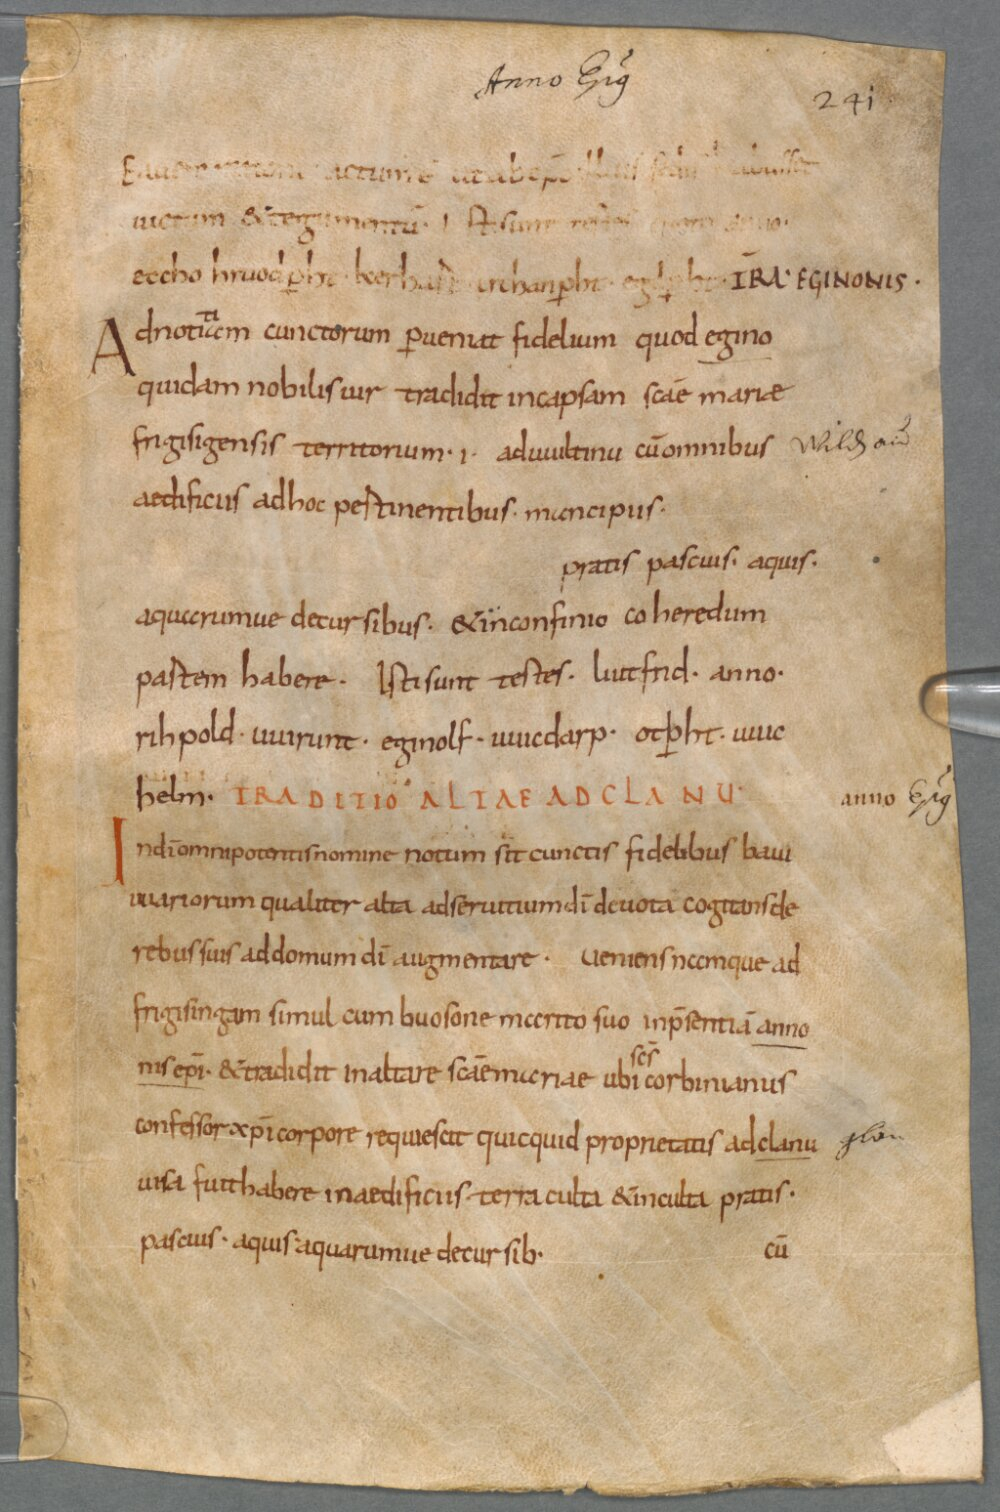 Anno Epỹ
241
uictum &tegumentũ· Isti sunt testes anno·
eccho hruodp̱ht· kerhart· erchanp̱ht· TRA EGINONIS·
Adnotitiam cunctorum ꝑueniat fidelium quod egino
quidam nobilis uir tradidit incapsam scāe mariæ
frigisigensis territorium· i· aduuiltinu cū omnibus
aedificiis adhoc pertinentibus· mancipiis·
pratis pascuis· aquis·
aquarumue decursibus· &inconfinio coheredum
partem habere· Isti sunt testes· liutfrid· anno·
rihpold· uuirunt· eginolf· uuicdarp· otp̱ht· uuic
helm· TRADITIO ALTAE AD CLANU·
anno Epỹ
Indī omnipotentis nomine notum sit cunctis fidelibus baui
uuariorum qualiter alta adseruitium dī deuota cogitans de
rebus suis addomum dī augmentare· Ueniens namque ad
frigisingam simul cum buosone marito suo inp̄sentiā anno
nis ep̄i· &tradidit in altare scāe mariae ubi scs̄ corbinianus
confessor xp̄i corpore requiescit quicquid proprietatis adclanu
uisa fuit habere in aedificiis terra culta &inculta pratis·
pascuis· aquis aquarumue decursib·
cū